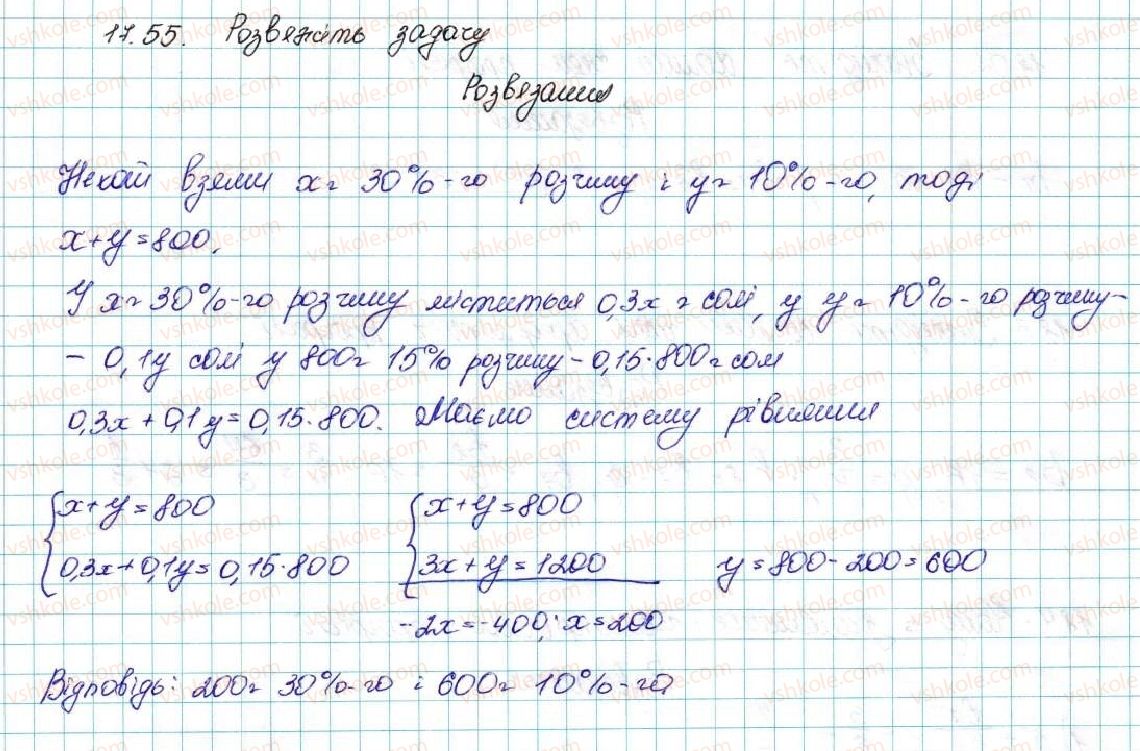 17.55. Розвяжіть задачу
Розвязання
Нехай взяли x г 30%-го розчину і y г 10%-го, тоді
x+y=800.
У x г 30%-го розчину міститься 0,3x г солі, у y г 10%-го розчину-
- 0,1y солі у 800г 15% розчину - 0,15·800г солі
0,3x+0,1y=0,15·800. Маємо систему рівняння
x+y=800 x+y=800
0,3x+0,1y=0,15·800 3x+y=1200 y=800-200=600
-2x=-400; x=200
Відповідь: 200г 30%-го і 600г 10%-го